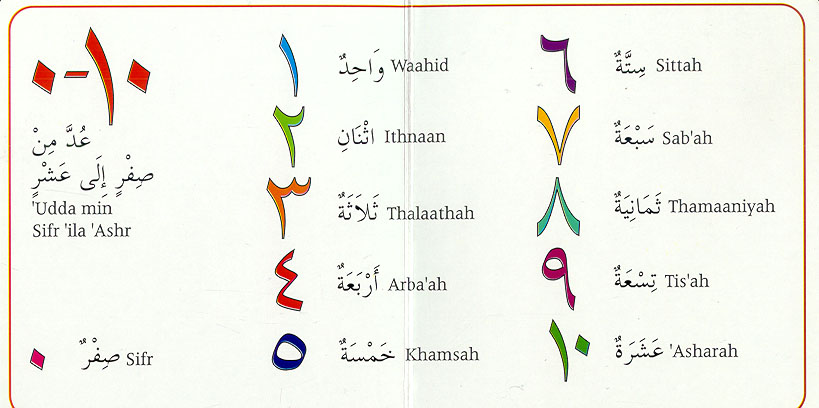 ٠-١٠
عُدَّ مِنْ
صِفْرٍ إِلَى عَشْرٍ
'Udda min
Sifr 'ila 'Ashr
٠ صِفْرٌ Sifr
١ وَاحِدٌ Waahid
٢ اثْنَانِ Ithnaan
٣ ثَلَاثَةٌ Thalaathah
٤ أَرْبَعَةٌ Arba'ah
٥ خَمْسَةٌ Khamsah
٦ سِتَّةٌ Sittah
٧ سَبْعَةٌ Sab'ah
٨ ثَمَانِيَةٌ Thamaaniyah
٩ تِسْعَةٌ Tis'ah
١٠ عَشَرَةٌ 'Asharah